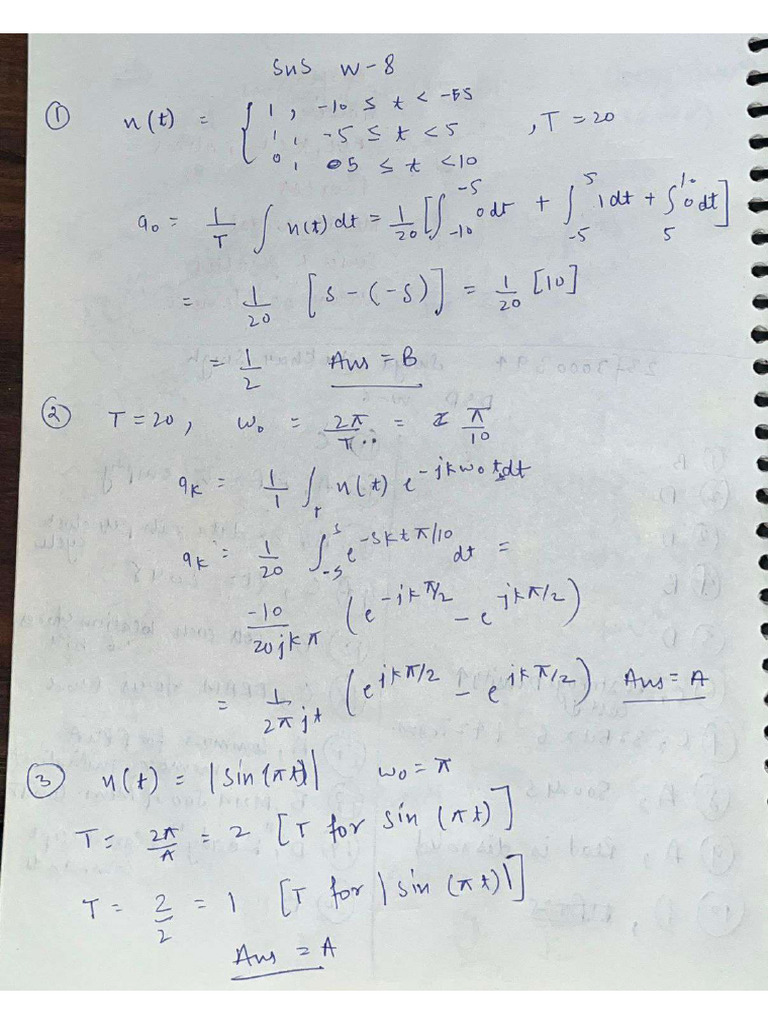 SnS W-8
① x(t) = { 1, -10 ≤ t < -5
1, -5 ≤ t < 5 , T = 20
0, 5 ≤ t < 10
a₀ = 1/T ∫ x(t) dt = 1/20 [∫_{-10}^{-5} 0dt + ∫_{-5}^{5} 1dt + ∫_{5}^{10} 0dt]
= 1/20 [5-(-5)] = 1/20 [10]
= 1/2 Ans = B
② T = 20, ω₀ = 2π/T = π/10
a_k = 1/T ∫_T x(t) e^{-jkω₀t} dt
a_k = 1/20 ∫_{-5}^{5} e^{-jktπ/10} dt =
-10/20jkπ (e^{-jkπ/2} - e^{jkπ/2})
= 1/2πjk (e^{jkπ/2} - e^{jkπ/2}) Ans = A
③ x(t) = |sin(πt)| ω₀ = π
T = 2π/π = 2 [T for sin(πt)]
T = 2/2 = 1 [T for |sin(πt)|]
Ans = A